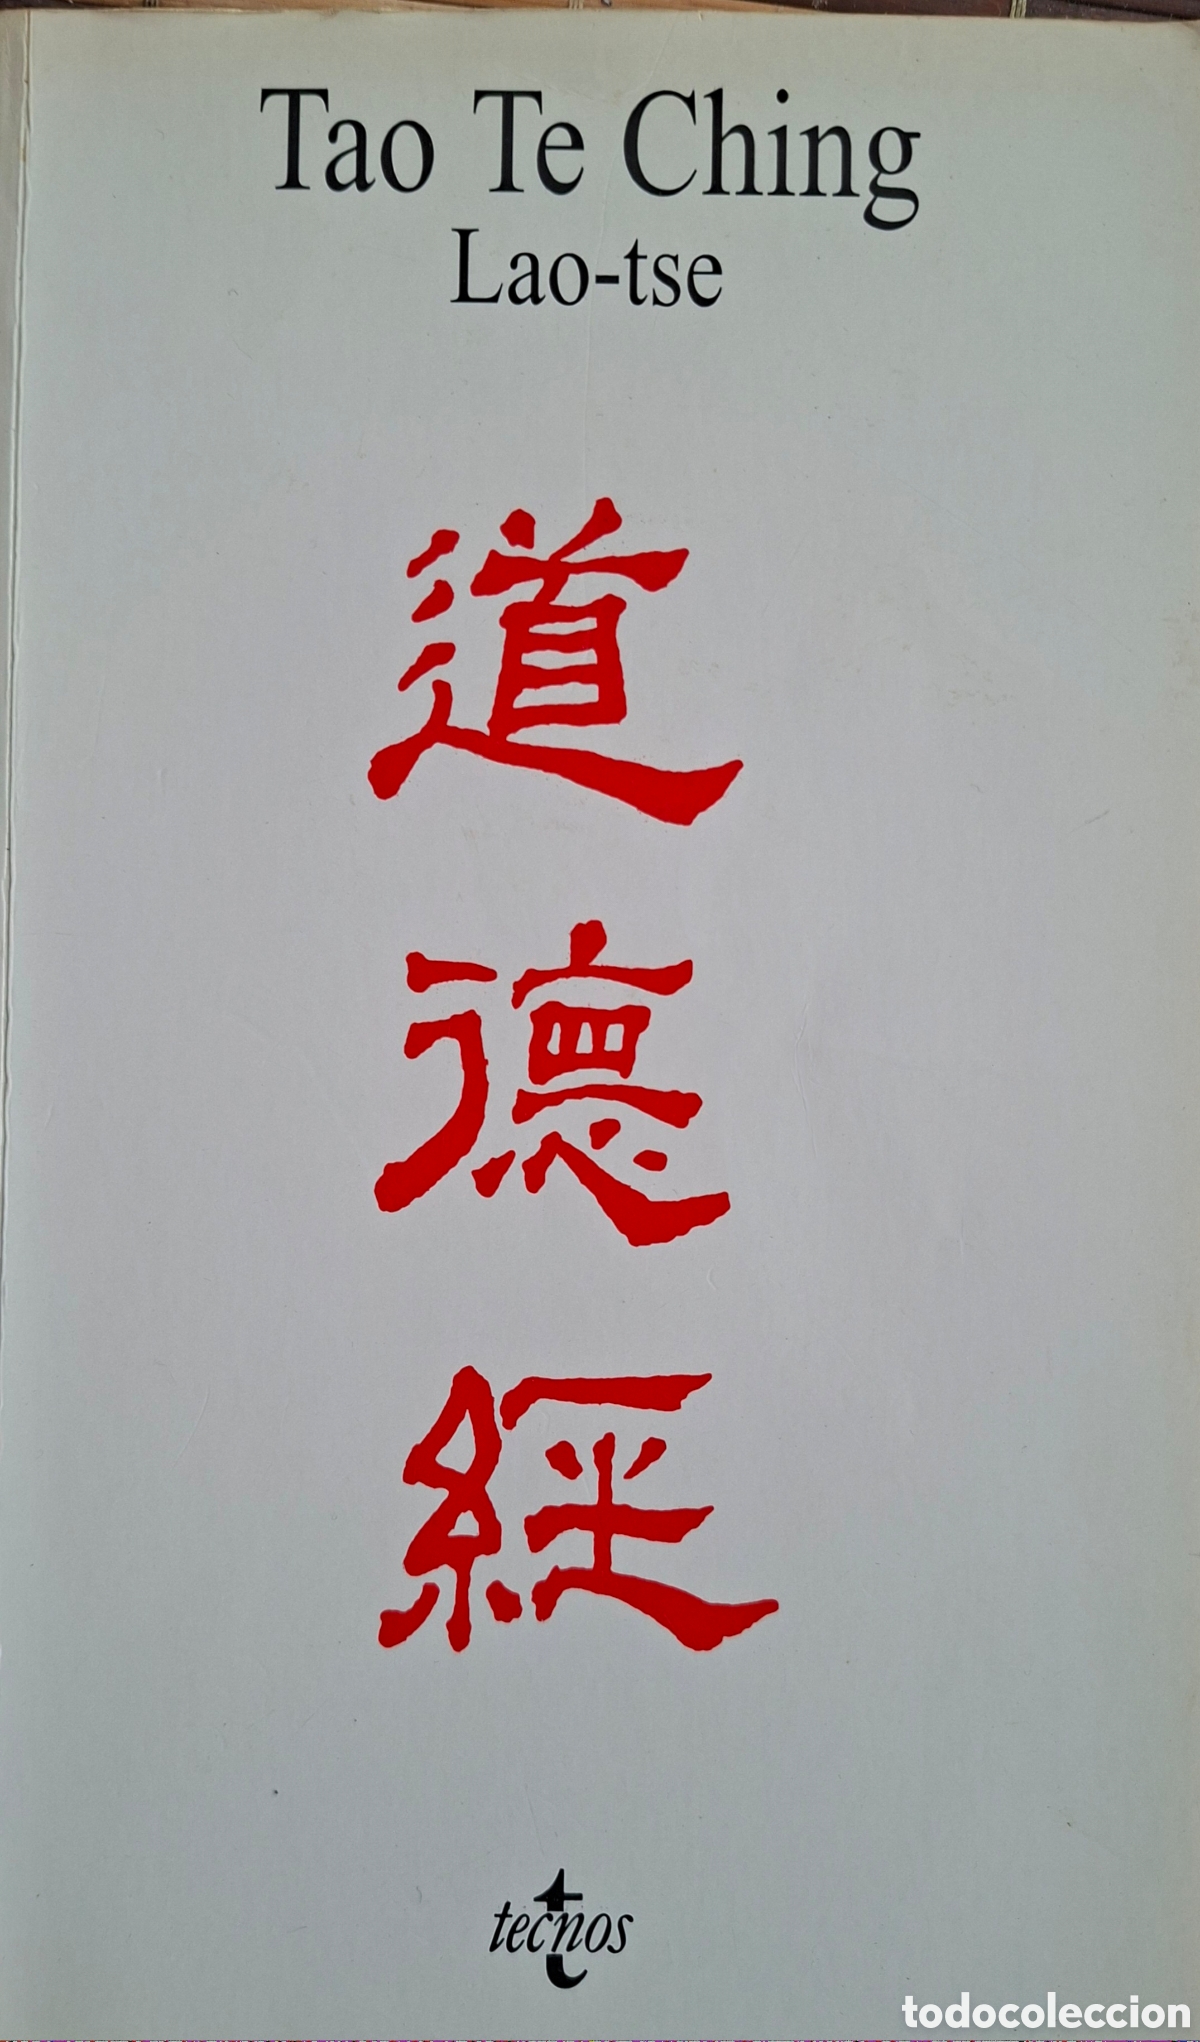 Tao Te Ching
Lao-tse
道
德
經
tecnos
todocoleccion